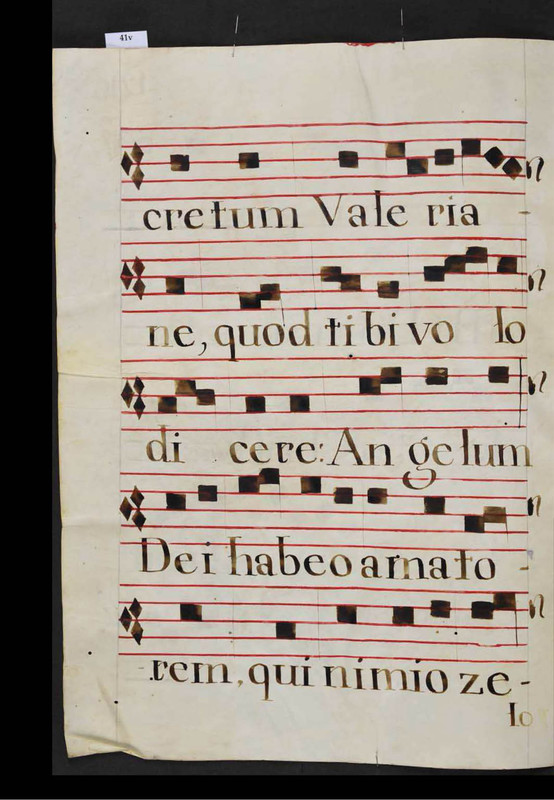 41v
cretum Vale ria -
ne, quod ti bi vo lo
di cere: An gelum
Dei habeo amato -
rem, qui nimio ze -
lo